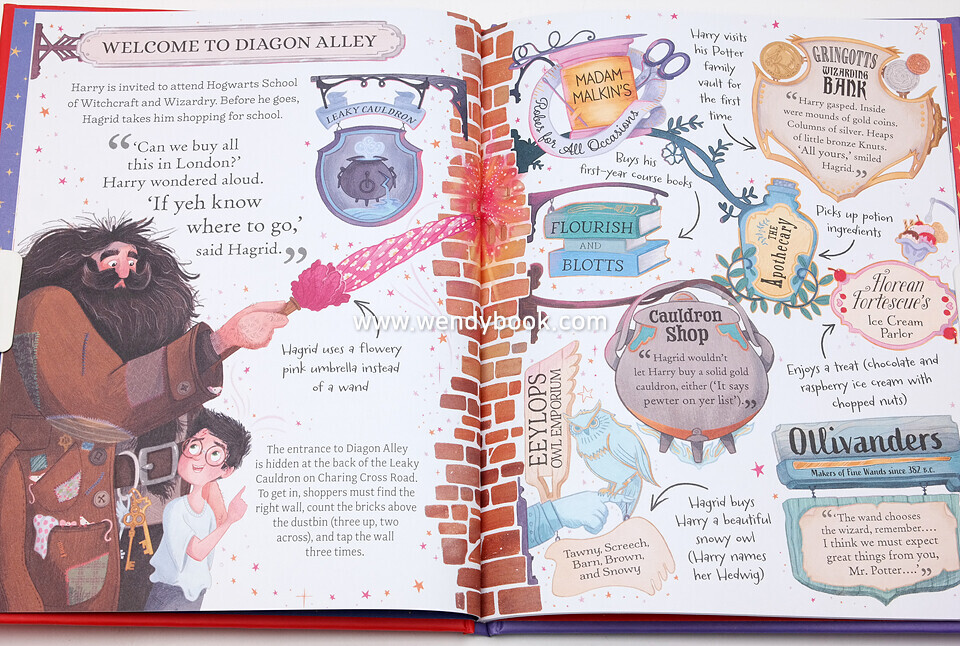 WELCOME TO DIAGON ALLEY
Harry is invited to attend Hogwarts School
of Witchcraft and Wizardry. Before he goes,
Hagrid takes him shopping for school.
“‘Can we buy all
this in London?’
Harry wondered aloud.
‘If yeh know
where to go,’
said Hagrid.”
LEAKY CAULDRON
Hagrid uses a flowery
pink umbrella instead
of a wand
The entrance to Diagon Alley
is hidden at the back of the Leaky
Cauldron on Charing Cross Road.
To get in, shoppers must find the
right wall, count the bricks above
the dustbin (three up, two
across), and tap the wall
three times.
www.wendybook.com
MADAM
MALKIN'S
Robes for All Occasions
Harry visits
his Potter
family
vault for
the first
time
GRINGOTTS
WIZARDING
BANK
“Harry gasped. Inside
were mounds of gold coins.
Columns of silver. Heaps
of little bronze Knuts.
‘All yours,’ smiled
Hagrid.”
Buys his
first-year course books
FLOURISH
AND
BLOTTS
THE
Apothecary
Picks up potion
ingredients
Florean
Fortescue's
Ice Cream
Parlor
Enjoys a treat (chocolate and
raspberry ice cream with
chopped nuts)
Cauldron
Shop
“Hagrid wouldn't
let Harry buy a solid gold
cauldron, either (‘It says
pewter on yer list’).”
EEYLOPS
OWL EMPORIUM
Tawny, Screech,
Barn, Brown,
and Snowy
Hagrid buys
Harry a beautiful
snowy owl
(Harry names
her Hedwig)
Ollivanders
Makers of Fine Wands since 382 B.C.
“‘The wand chooses
the wizard, remember....
I think we must expect
great things from you,
Mr. Potter....’”